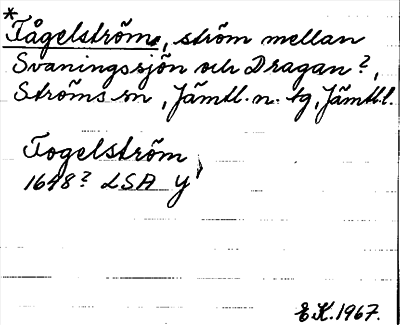 *Fågelström, ström mellan
Svaningssjön och Dragan?,
Ströms sn, Jämtl. n. tg, Jämtl.l.
Fogelström
1648? LSA Y
EK.1967.